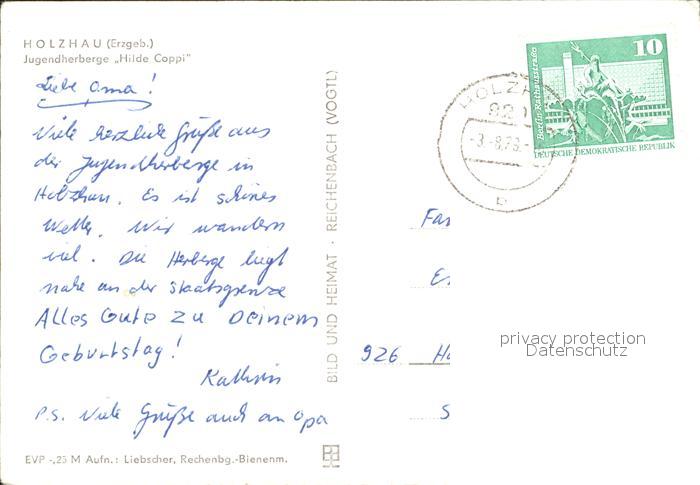 HOLZHAU (Erzgeb.)
Jugendherberge „Hilde Coppi"
Liebe Oma!
Viele herzliche Grüße aus
der Jugendherberge in
Holzhau. Es ist schönes
Wetter. Wir wandern
viel. Die Herberge liegt
nahe an der Staatsgrenze
Alles Gute zu Deinem
Geburtstag!
Kathrin
P.S. Viele Grüße auch an Opa
EVP -,25 M Aufn.: Liebscher, Rechenbg.-Bienenm.
BILD UND HEIMAT · REICHENBACH (VOGTL)
10
Berlin-Rathausstraße
DEUTSCHE DEMOKRATISCHE REPUBLIK
HOLZHA
b
Fa
926 H
S
privacy protection
Datenschutz